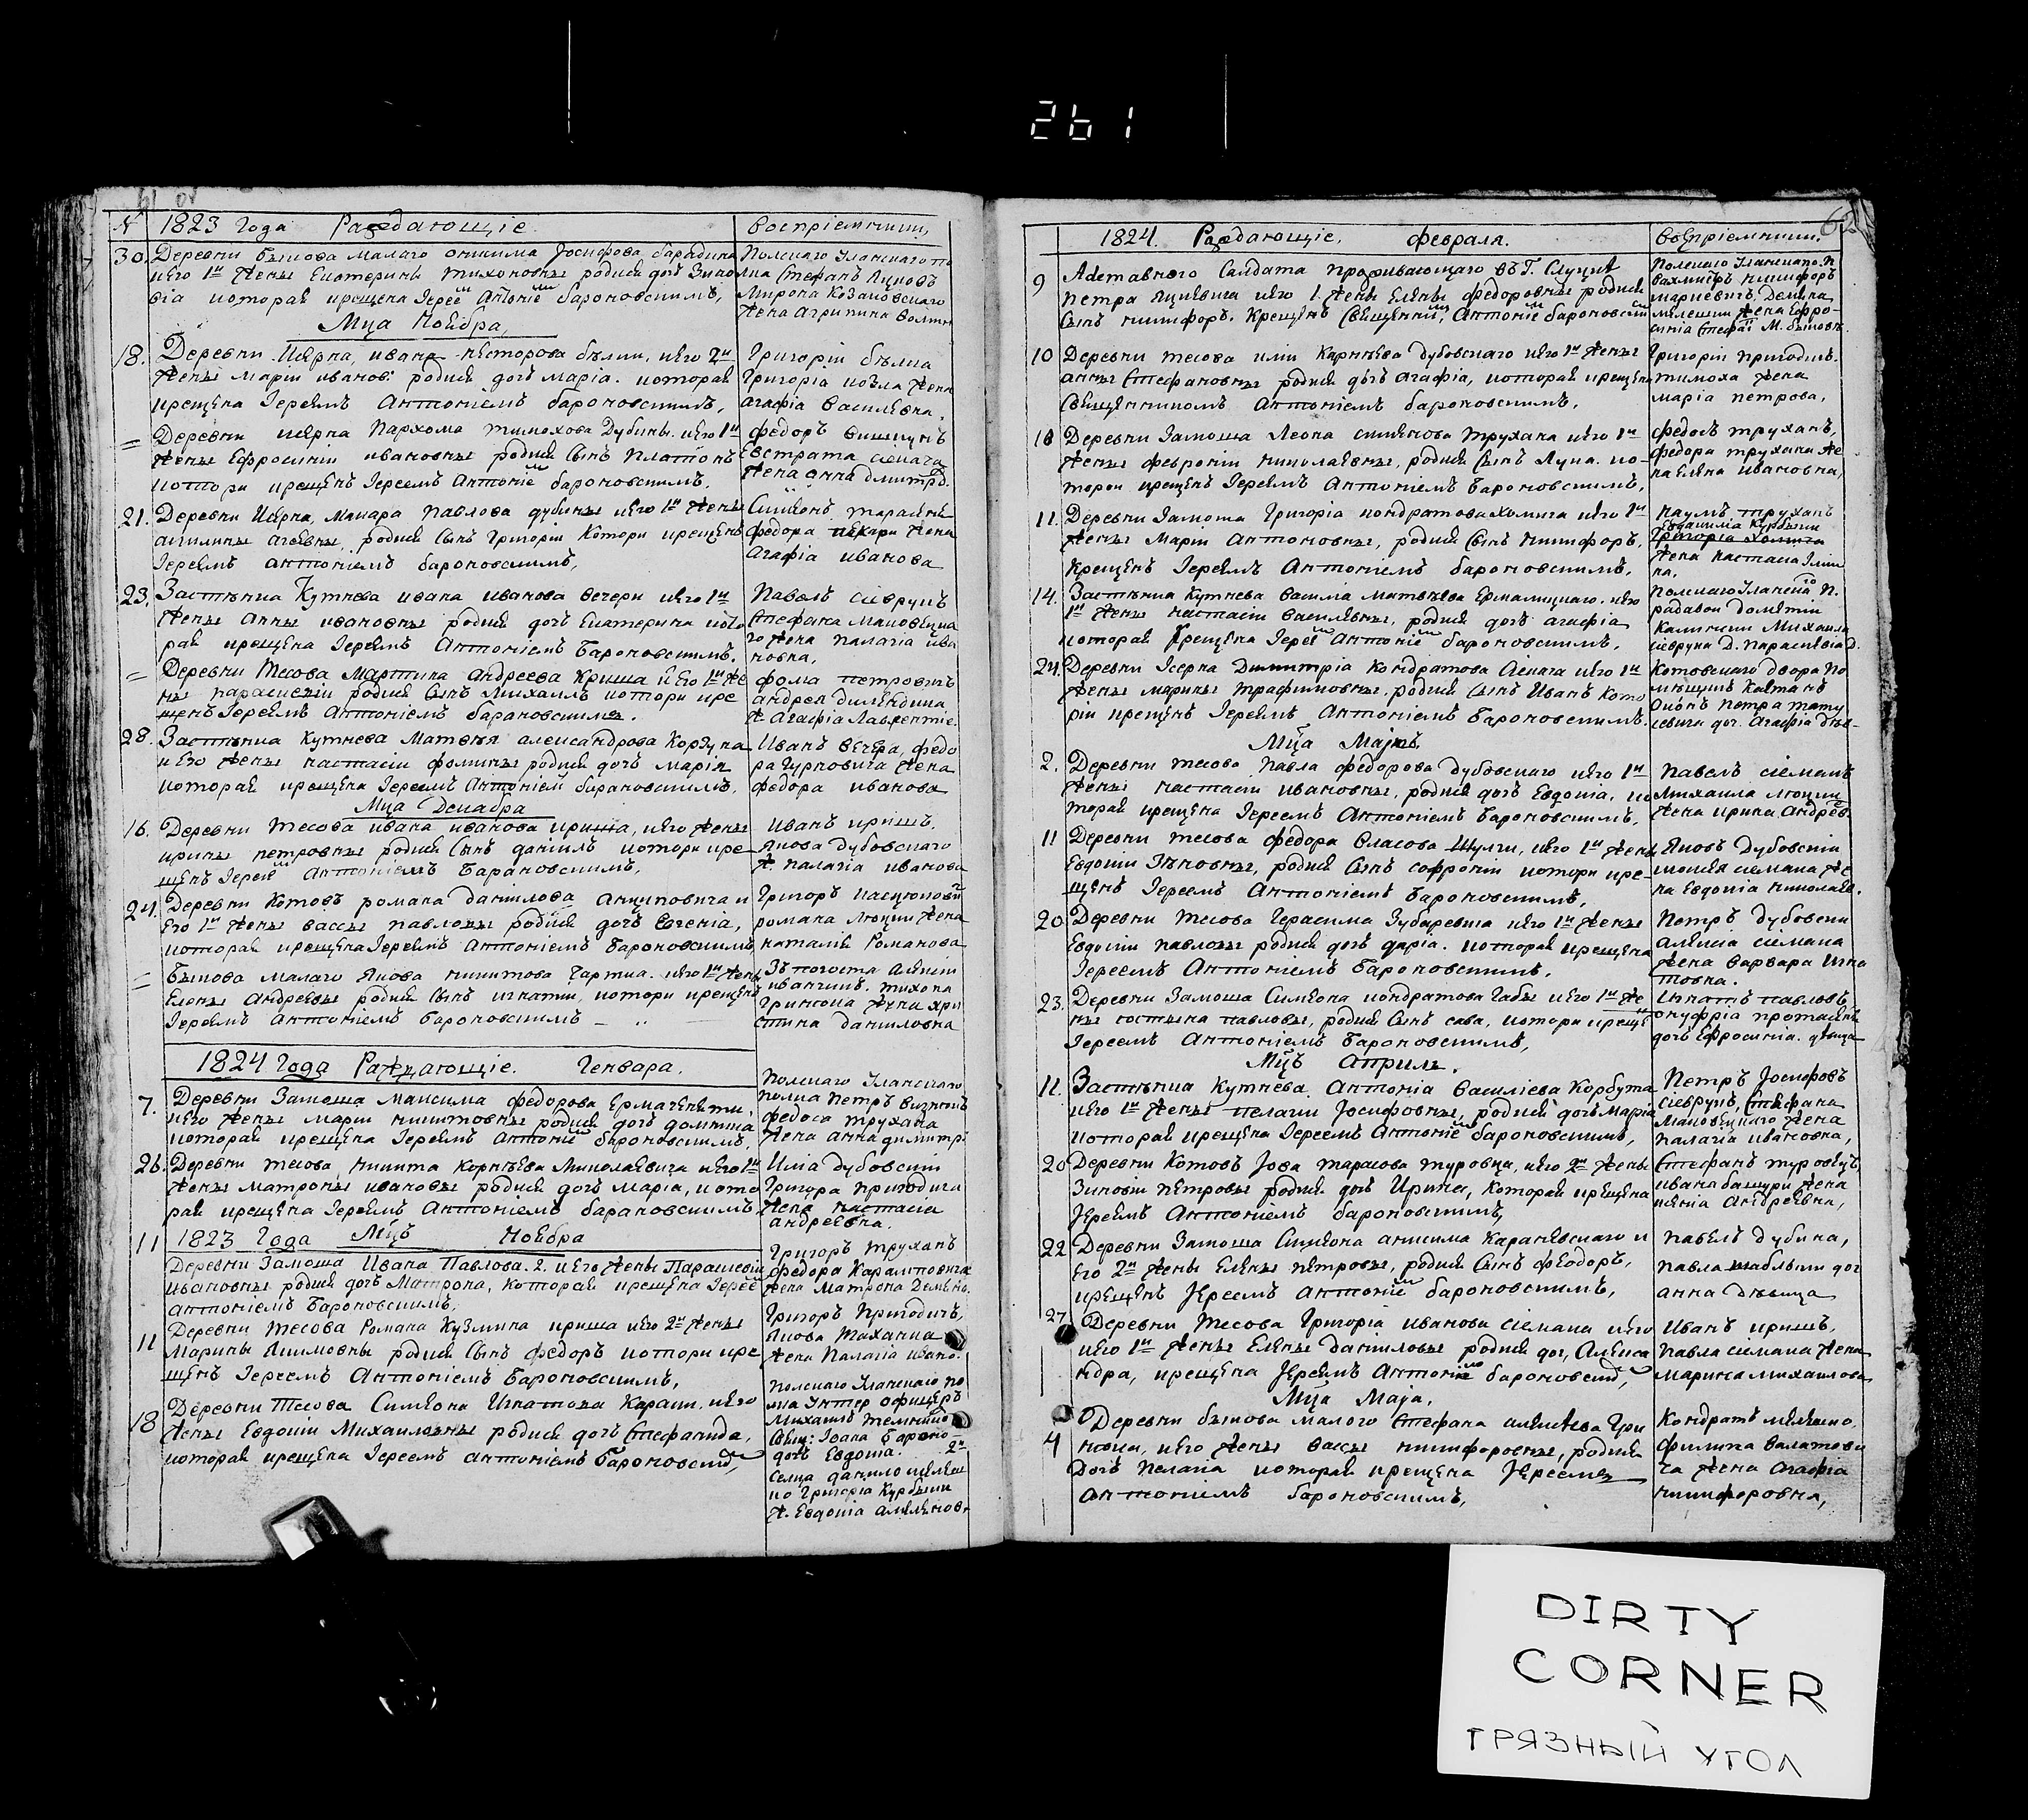 261
№ 1823 Года Раждающіе. воспріемники,
30. Деревни Быкова малаго онисима Јосифова
и его 1й жены Екатерины тихоновны родися дочь Зино
віа которая крещена Іереемъ Антоніемъ бароновскимъ,
Полскаго Уланскаго по
лка Стефанъ Яцковъ
Мирона Козановскаго
жена Агрипина
Мца Ноябра,
18. Деревни Исерна, ивана несторова бѣлки, и его 2й
жены маріи иванов: родися дочь маріа. которая
крещена Іереемъ Антоніемъ бароновскимъ,
Григоріи бѣлка
Григоріа жена
агафіа василевна,
= Деревни исерна Пархома тимохова Дубины. и его 1й
жены Ефросиніи ивановны родися Сынъ Платонъ
котори крещенъ Іереемъ Антоніе бароновскимъ.
федоръ
Евстрата сѣкача
жена анна дмитр.
21. Деревни Исерна, макара павлова дубины и его 1й жены
акилины агеевны, родися Сынъ Григоріи Котори крещенъ
Іереемъ антоніемъ бароновскимъ,
Симеонъ
федора пекари жена
Агафіа иванова
23. Застѣнка Кутнева ивана иванова вечери и его 1й
жены Анны ивановны родися дочь Екатерина кото
рая крещена Іереемъ Антоніемъ Бароновскимъ.
Павелъ севрукъ
Стефана Маковецка
го жена палагіа ива
новна,
= Деревни Тесова Мартина андреева Криша и его 1й же
ны параскевіи родися Сынъ Михаилъ котори кре
щенъ Іереемъ Антоніемъ барановскимъ.
фома петровичъ
андрея
ж Агафіа Лаврентіе.
28. Застѣнка Кутнева Матвѣя александрова Корзуна
и его жены настасіи фомины родися дочь маріа
которая крещена Іереемъ Антоніем барановскимъ,
Иванъ вечера, федо
ра гурковича жена
федора иванова
Мца Декабра
16. Деревни тесова ивана иванова криша, и его жены
ирины петровны родися Сынъ данилъ котори кре-
щенъ Іереем Антоніемъ Барановскимъ,
Иванъ кришъ.
Якова дубовскаго
ж. палагіа иванова
24. Деревни Котовъ романа данилова анциповича и
его 1й жены вассы павловы родися дочъ Евгеніа,
которая крещена Іереемъ Антоніемъ бароновскимъ
Григоръ
романа жена
наталіа Романова
= Быкова малаго Якова никитова Чартка. и его 1й жены
Елены андреевы родися Сынъ игнатіи, котори крещенъ
Іереемъ антоніемъ бароновскимъ
Зъ погоста
тихона
Гринюка жена хри
стина даниловна
1824 Года Раждающіе. Генвара.
7. Деревни Замоша Максима федорова
и его жены маріи никитовны родися дочь домника
которая крещена Іереемъ Антоніе бароновскимъ,
Полскаго Уланскаго
полка Петръ
федоса трухана
жена анна димитрі.
26. Деревни тесова, никита Корнѣева Миколаевича и его 1й
жены матроны ивановы родися дочъ маріа, кото
рая крещена Іереемъ Антоніемъ барановскимъ
Иліа дубовскіи
Григора пригодича
жена настасіа
андреевна.
11 1823 Года Мцъ Ноября
Деревни Замоша Ивана Павлова. 2. и его жены Параскевіи
ивановны родися дочъ Матрона, которая крещена Іерее
антоніемъ Бароновскимъ.
Григоръ Труханъ
федора
жена Матрона
11 Деревни тесова Романа Кузмина криша и его 2й жены
Марины Якимовны родися Сынъ федоръ котори кре
щенъ Іереемъ Антоніемъ Бароновскимъ,
Григоръ Пригодичъ,
Якова
жена Палагіа ивано.
18 Деревни Тесова Симеона Игнатова и его
жены Евдокіи Михаиловны родися дочъ Стефанида,
которая крещена Іереемъ антоніемъ Бароновски,
полскаго Уланскаго по
лка Унтер офицеръ
Михаилъ
Свщ: Іоана Бароно-
дочь Евдокіа. 2й
Селца данило
ко Григоріа Курбыки
ж. Евдокіа
62
1824. Раждающіе. февраля. воспріемники.
9 Аставного Салдата проживающаго въ Г. Слуцке
Петра Яцкевича и его 1. жены Елены федоровны родися
Сынъ никифоръ. Крещенъ Свещенник, Антоніе бароновски
полскаго Уланскаго п.
вахмистръ никифоръ
маркевичъ,
жена Ефро-
синіа
10 Деревни тесова иліи Карнѣева дубовскаго и его 1й жены
анны Стефановны родися дочъ агафіа, которая крещена
Свещенникомъ Антоніемъ бароновскимъ.
Григоріи пригодичъ.
тимоха жена
маріа петрова,
10 Деревни Замоша Леона симеонова трухана и его 1й
жены февроніи николаевны, родися Сынъ Лука. ко-
торои крещенъ Іереемъ Антоніемъ Бароновскимъ,
федосъ труханъ,
федора трухана же
на Елена ивановна,
11. Деревни Замоша Григоріа кондратова хомича и его 1й
жены Маріи Антоновны, родися Сынъ никифоръ.
Крещенъ Іереемъ Антоніемъ бароновскимъ.
наумъ труханъ
Курбыки
Григоріа Хомича
жена настасіа
на,
14. Застѣнка Кутнева васила матвѣева Ермалицкаго. и его
1й жены настасіи василевны, родися дочъ агафіа
которая Крещена Іере Антоніе бароновскимъ.
полскаго Уланска п.
радавои
Калинкин Михаила
севрука д. параскевіа д.
24. Деревни Ісерна Димитріа Кондратова Сѣкача и его 1й
жены марины трафимовны, родися Сынъ Иванъ кото
ріи крещенъ Іереемъ Антоніемъ Бароновскимъ.
Котовскаго двора по
мещикъ Каетанъ
петра мату
севича доч. Агафіа дѣв-
Мца Марта
2. Деревни тесова Павла федорова дубовскаго и его 1й
жены настасіи ивановны, родися дочъ Евдокіа. ко
торая крещена Іереемъ Антоніемъ Бароновскимъ,
Павелъ секмачъ
михаила
жена ирина Андрее.
11 Деревни тесова федора Власова Шулги, и его 1й жены
Евдокіи родися Сынъ софроніи котори кре-
щенъ Іереемъ Антоніемъ Бароновскимъ,
Яковъ Дубовскіи
же
на Евдокіа николаев.
20 Деревни тесова Герасима Зубаревича и его 1й жены
Евдокіи павловы родися дочъ даріа. которая крещена
Іереемъ Антоніемъ Бароновскимъ,
Петръ дубовски
алексіа
жена варвара игна
товна.
23. Деревни Замоша Симеона кондратова Габы и его 1й же
ны павловы, родися Сынъ сава, котори креще
Іереемъ Антоніемъ Бароновскимъ,
Игнатъ павловъ,
онуфріа
дочъ Ефросиніа. дѣвица
Мцъ Априль.
11. Застѣнка Кутнева Антоніа Василіева Корбута
и его 1й жены пелагіи Јосифовны, родися дочъ Маріа
которая крещена Іереемъ Антоніе бароновскимъ,
Петръ Јосифовъ
севрукъ, Стефана
Маковецкаго жена
палагіа ивановна,
20 Деревни Котовъ Јова тарасова туровца, и его 2й жены
Зиновіи петровы родися дочъ Ирина, Которая крещена
Јереемъ Антоніемъ бароновскимъ,
Стефанъ туровецъ
ивана башури жена
ксеніа Андреевна,
22 Деревни Замоша Симеона анисима Караневскаго и
его 2й жены елены петровы, родися Сынъ феодоръ,
крещенъ Јереемъ антоніе бароновскимъ,
павелъ дубина,
павла доч
анна дѣвица
27 Деревни тесова Григоріа иванова секмача и его
и его 1й жены Елены даниловы родися доч, Алекса
ндра, крещена Јереемъ Антоніе бароновски,
Иванъ кришъ,
павла секмача жена
марина михаилова
Мца Маја.
4 Деревни быкова малого Стефана алексеева Гри
нюка, и его жены вассы никифоровны, родися
Дочъ пелагіа которая крещена Јереемъ
антоніемъ бароновскимъ,
Кондратъ
филипа валатови
ча жена Агафіа
никифоровна,
DIRTY
CORNER
ГРЯЗНЫЙ УГОЛ